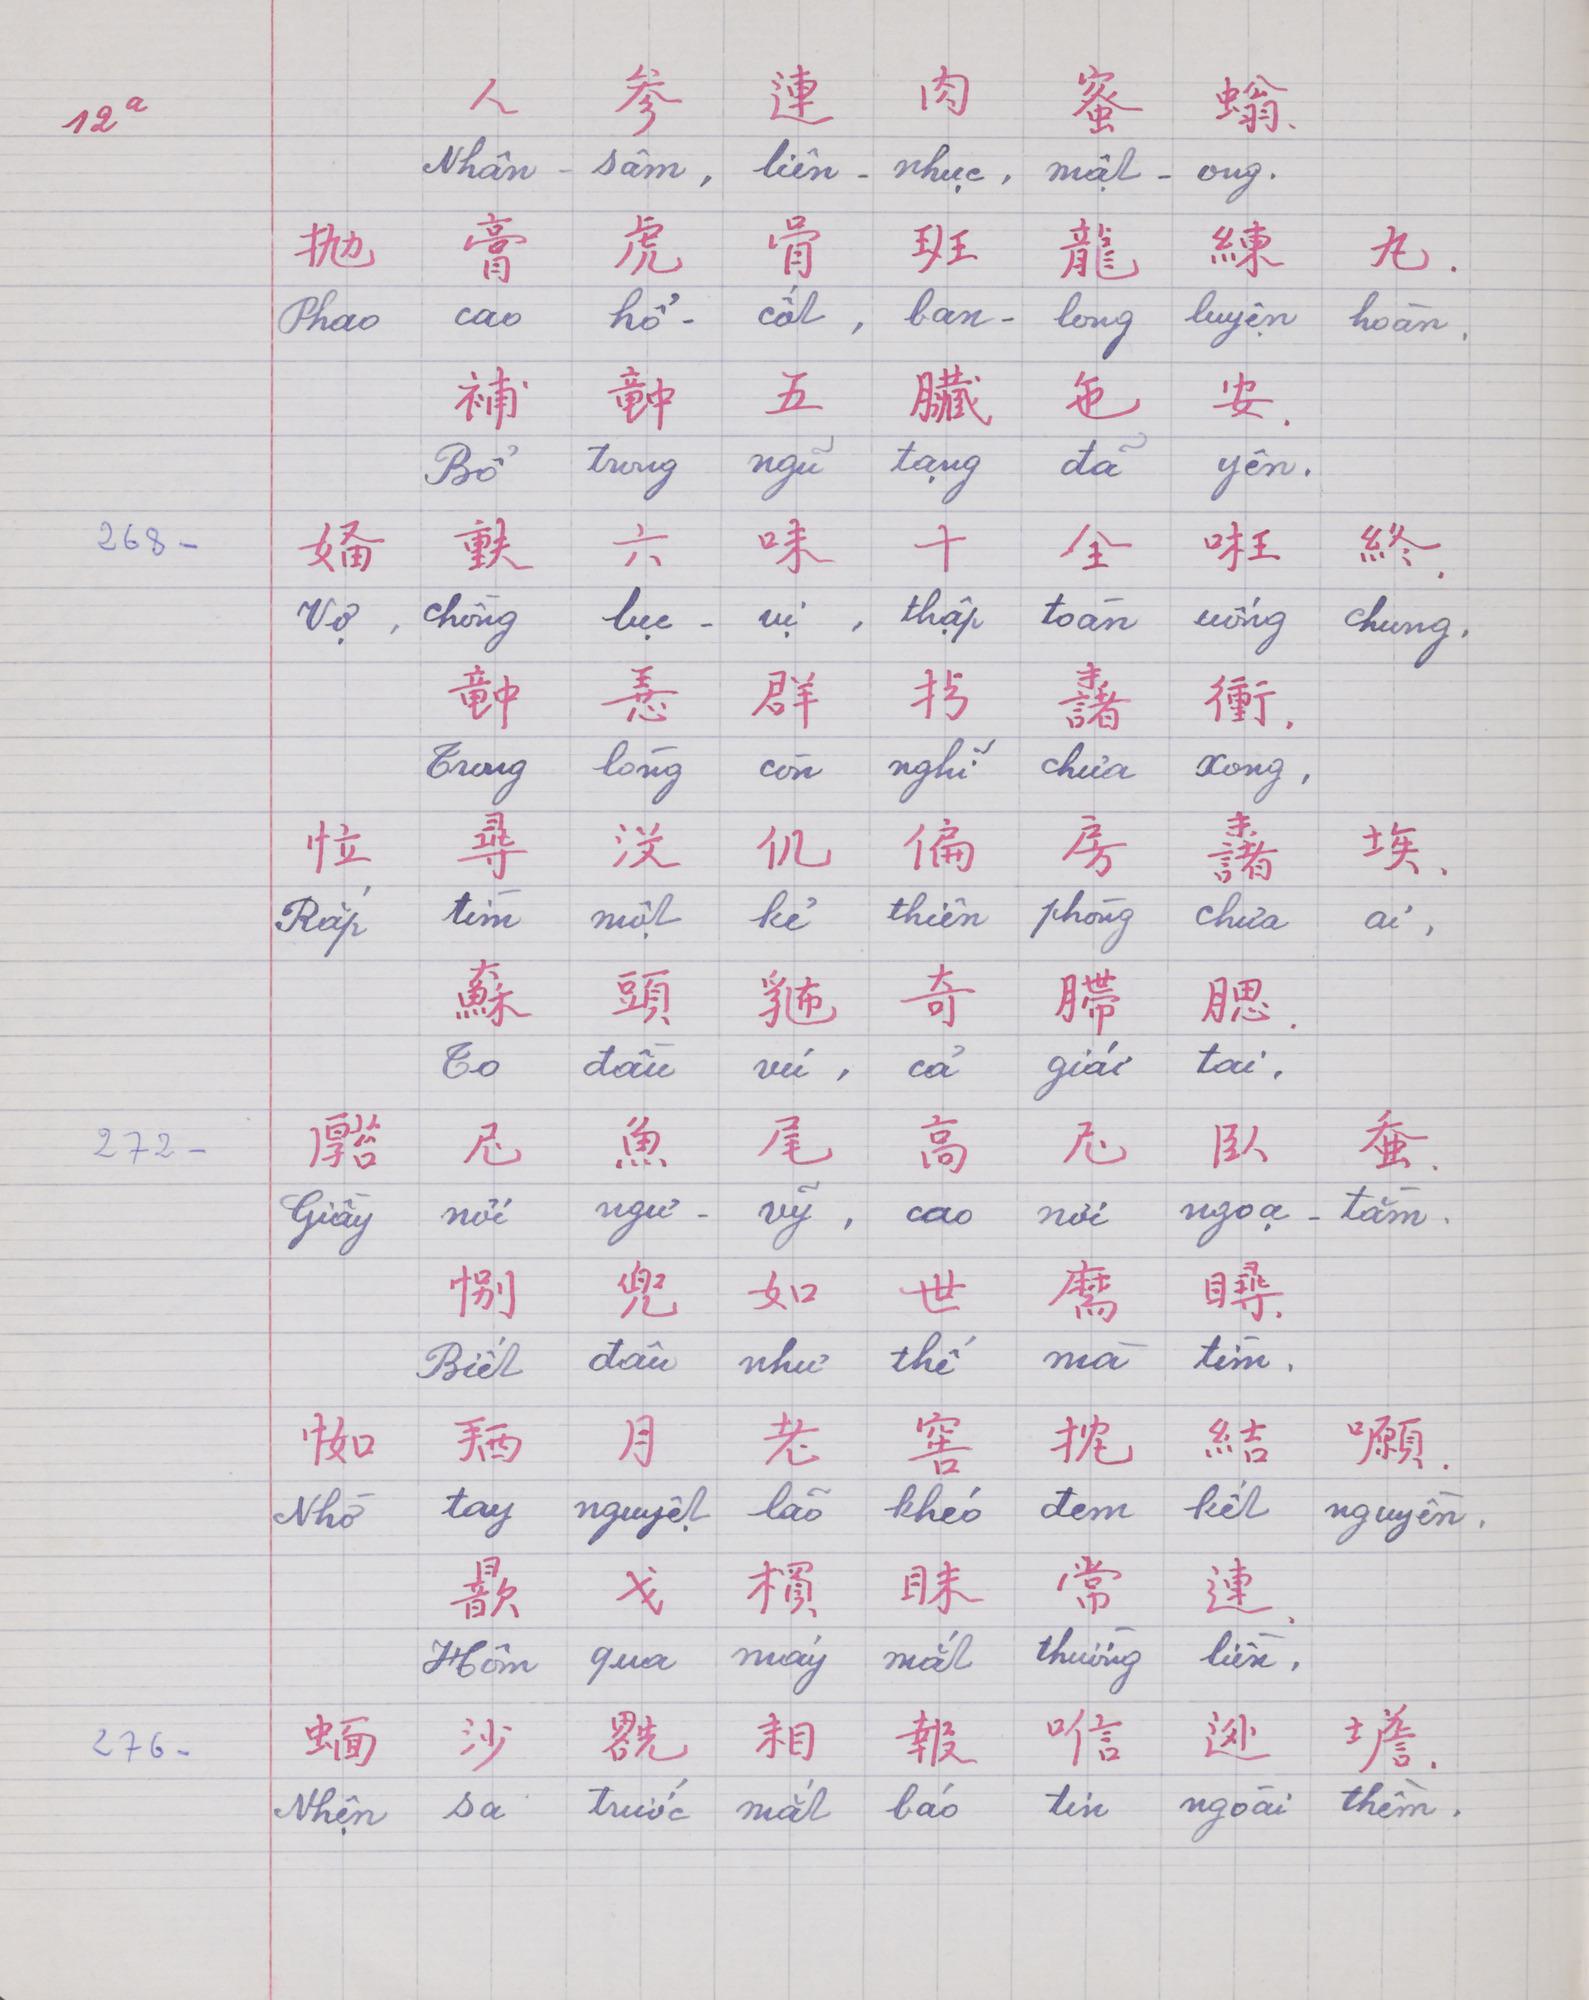 12ª
人 參 連 肉 蜜 螉.
Nhân - sâm, liên - nhục, mật - ong.
抛 膏 虎 骨 班 龍 練 丸.
Phao cao hổ - cốt, ban - long luyện hoàn.
補 𥪝 五 臟 㐌 安.
Bổ trung ngũ tạng đã yên.
268 -
𡞕 𫯳 六 味 十 全 㕵 終.
Vợ, chồng lục - vị, thập toàn uống chung.
𥪝 𢚸 群 𢪮 𣗓 衝.
Trong lòng còn nghĩ chửa xong,
𢗼 尋 没 仉 偏 房 𣗓 埃.
Rắp tìm một kẻ thiên phòng chửa ai,
蘇 頭 奇 腮.
To đầu vú, cả giái tai,
272 -
尼 魚 尾 高 尼 臥 蚕.
Giầy nơi ngư - vỹ, cao nơi ngoạ - tằm.
別 兜 如 世 𦓡 尋.
Biết đâu như thế mà tìm.
𢘾 𢬣 月 老 窖 抌 結 願.
Nhờ tay nguyệt lão khéo đem kết nguyền.
𣋚 戈 𥄮 常 連.
Hôm qua máy mắt thường liền,
276 -
沙 𠓀 相 報 信 外 𡍞.
Nhện sa trước mắt báo tin ngoài thềm.